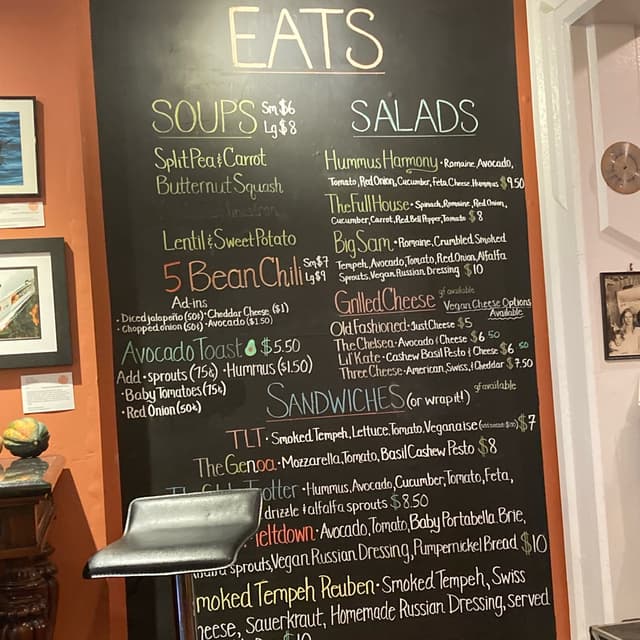 EATS
SOUPS Sm $6
Lg $8
Split Pea & Carrot
Butternut Squash
Lentil & Sweet Potato
5 Bean Chili Sm $7
Lg $9
Ad-ins
• Diced jalapeño (50¢) • Cheddar Cheese ($1)
• Chopped onion (50¢) • Avocado ($1.50)
Avocado Toast $5.50
Add • sprouts (75¢) • Hummus ($1.50)
• Baby Tomatoes (75¢)
• Red Onion (50¢)
SALADS
Hummus Harmony • Romaine, Avocado,
Tomato, Red Onion, Cucumber, Feta Cheese, Hummus $9.50
The Full House • Spinach, Romaine, Red Onion,
Cucumber, Carrot, Red Bell Pepper, Tomato $8
Big Sam • Romaine, Crumbled Smoked
Tempeh, Avocado, Tomato, Red Onion, Alfalfa
Sprouts, Vegan Russian Dressing $10
Grilled Cheese gf available
Vegan Cheese Options
Available
Old Fashioned • Just Cheese $5
The Chelsea • Avocado & Cheese $6 50
Lil' Kate • Cashew Basil Pesto & Cheese $6 50
Three Cheese • American, Swiss, & Cheddar $7.50
SANDWICHES (or wrap it!) gf available
TLT • Smoked Tempeh, Lettuce, Tomato, Veganaise $7
The Genoa • Mozzarella, Tomato, Basil Cashew Pesto $8
The trotter • Hummus, Avocado, Cucumber, Tomato, Feta,
drizzle & alfalfa sprouts $8.50
eltdown • Avocado, Tomato, Baby Portabella, Brie,
sprouts, Vegan Russian Dressing, Pumpernickel Bread $10
moked Tempeh Reuben • Smoked Tempeh, Swiss
heese, Sauerkraut, Homemade Russian Dressing, served
$10